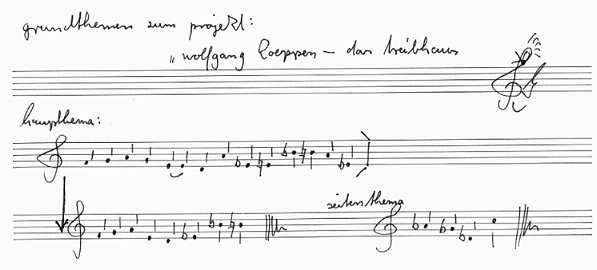 grundthemen zum projekt:
„wolfgang koeppen – das treibhaus
hauptthema:
seitenthema